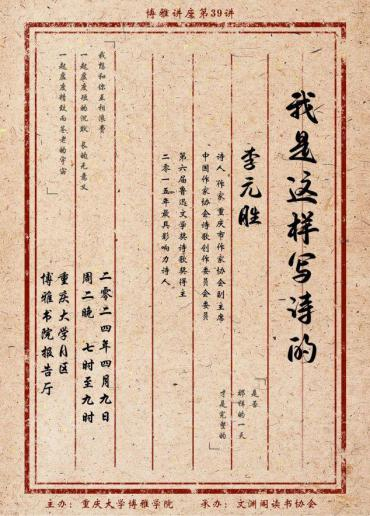 博雅讲座第39讲
我是这样写诗的
是否
那样的一天
才是完整的
李元胜
诗人 作家 重庆市作家协会副主席
中国作家协会诗歌创作委员会委员
第六届鲁迅文学奖诗歌奖得主
二零一五年最具影响力诗人
二零二四年四月九日
周二晚 七时至九时
重庆大学A区
博雅书院报告厅
我想和你互相浪费
一起虚度短的沉默 长的无意义
一起虚度精致而苍老的宇宙
主办：重庆大学博雅学院
承办：文渊阁读书协会